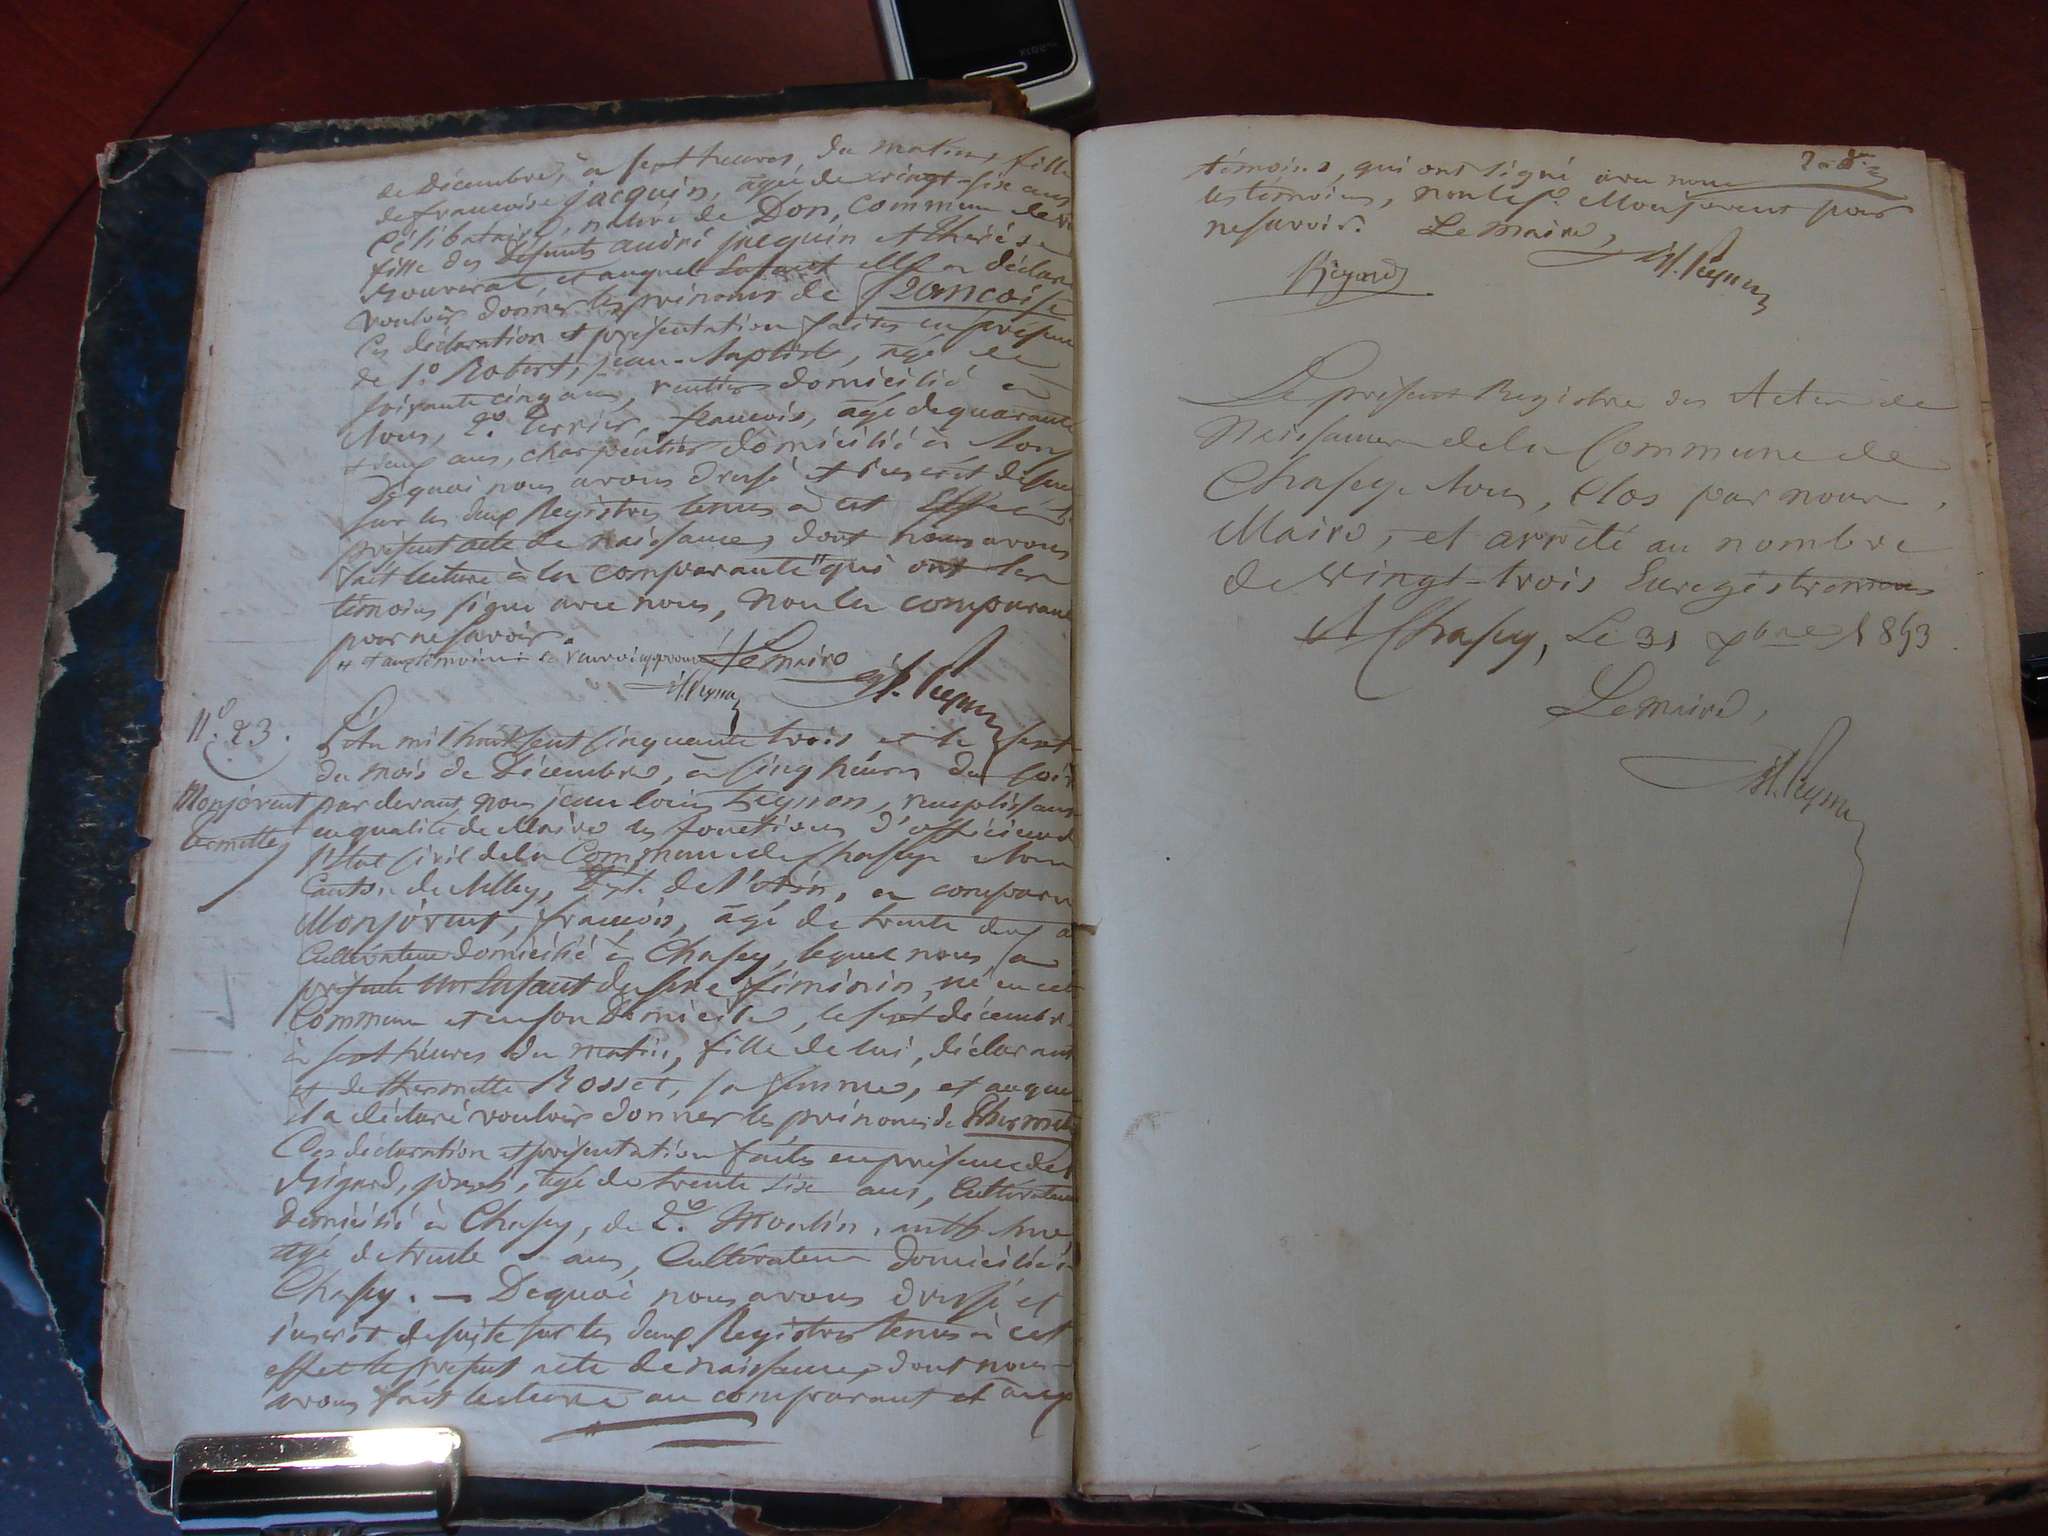 de Décembre, à sept heures, du matin, fille
de francoise jacquin, âgée de vingt-six ans
Célibataire, native de Don, Commune de
fille des défunts andré jacquin et thérèse
et auquel Enfant elle a déclaré
vouloir donner les prénoms de francoise
Ces déclaration et présentation faites en présence
de 1.º Robert, jean-baptiste, âgé de
soixante cinq ans, rentier domicilié à
2º. terrier, francois, âgé de quarante
deux ans, charpentier domicilié à
Dequoi nous avons dressé et inscrit desuite
sur les deux Registres tenus à cet Effet le
présent acte de naissance, dont nous avons
fait lecture à la comparante " qui ont les
témoins signé avec nous, non la comparante
pour ne savoir.
" et aux témoins Le renvoi approuvé Le maire
Nº. 23. L'an mil huit cent cinquante trois, et le sept
du mois de Décembre, à cinq heures du soir
Monjovent par devant nous jean louis remplissant
termette en qualité de Maire les fonctions d'officier de
l'Etat Civil de la Commune de Chasey
Canton de Dpt. de l'ain, a comparu
Monjovent, francois, âgé de trente deux ans
Cultivateur domicilié à Chasey, lequel nous a
présenté Un Enfant du sexe féminin, né en cette
Commune et en son Domicile, le sept décembre
à sept heures du matin, fille de lui, déclarant
et de thermette Rosset, sa femme, et auquel
il a déclaré vouloir donner les prénoms de thermette
Ces déclaration et présentation faites en présence de 1
joseph, âgé de trente six ans, Cultivateur
domicilié à Chasey, de 2º. Moulin, anthelme
âgé de trente ans, Cultivateur domicilié à
Chasey. — Dequoi nous avons dressé et
inscrit desuite sur les deux Registres tenus à cet
effet le présent acte de naissance, dont nous
avons fait lecture au comparant et aux
témoins, qui ont signé avec nous
les temoins, non led. Monjovent pour
ne savoir. Le maire,
Le présent Registre des Actes de
Naissances de la Commune de
Chasey Clos par nous,
Maire, et arrêté au nombre
de vingt-trois Enregistremens
A Chasey, Le 31 xbre 1853
Le maire,